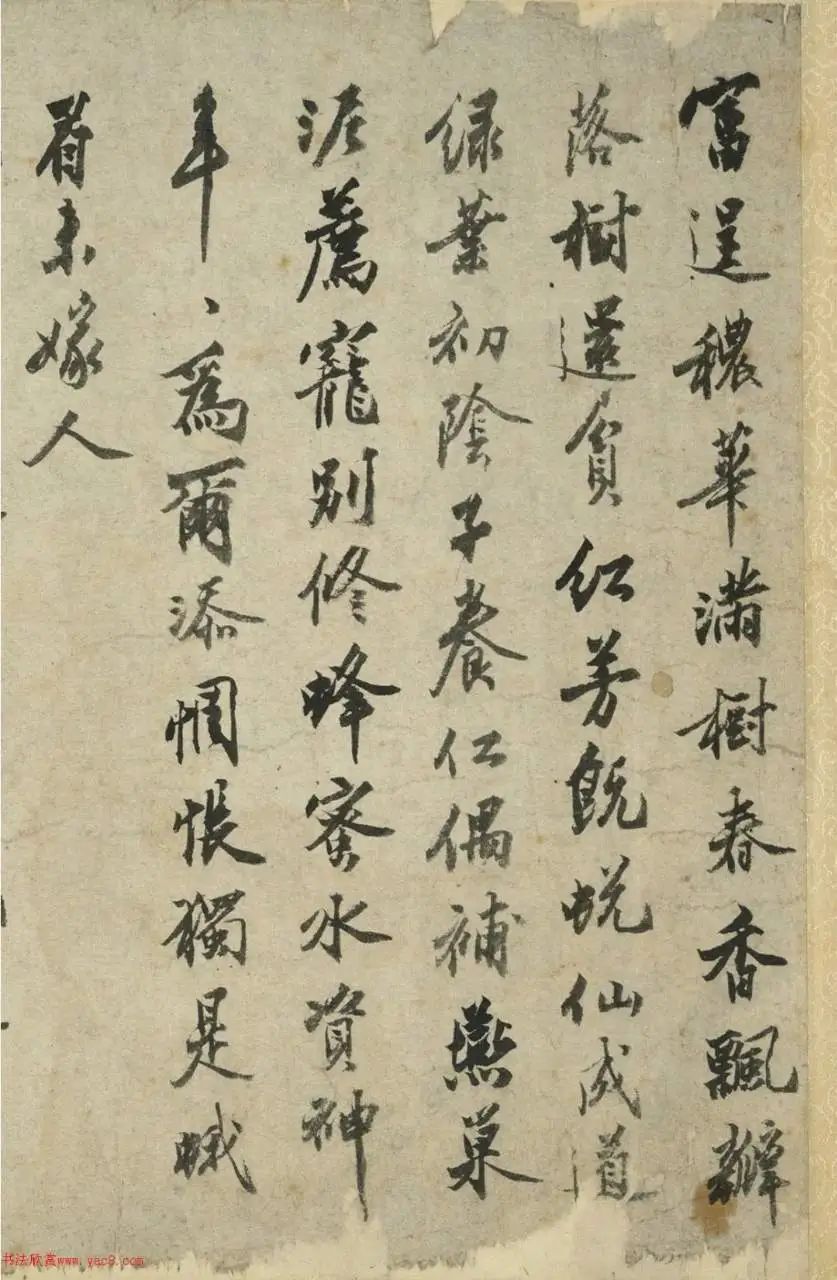 富逞穠華滿樹春香飄瓣
落樹還貧紅芳既蛻仙成道
緑葉初陰子養仁偶補燕巢
泥薦寵別修蜂蜜水資神
年、為爾添惆悵獨是蛾
眉未嫁人
书法欣赏www.yac8.com